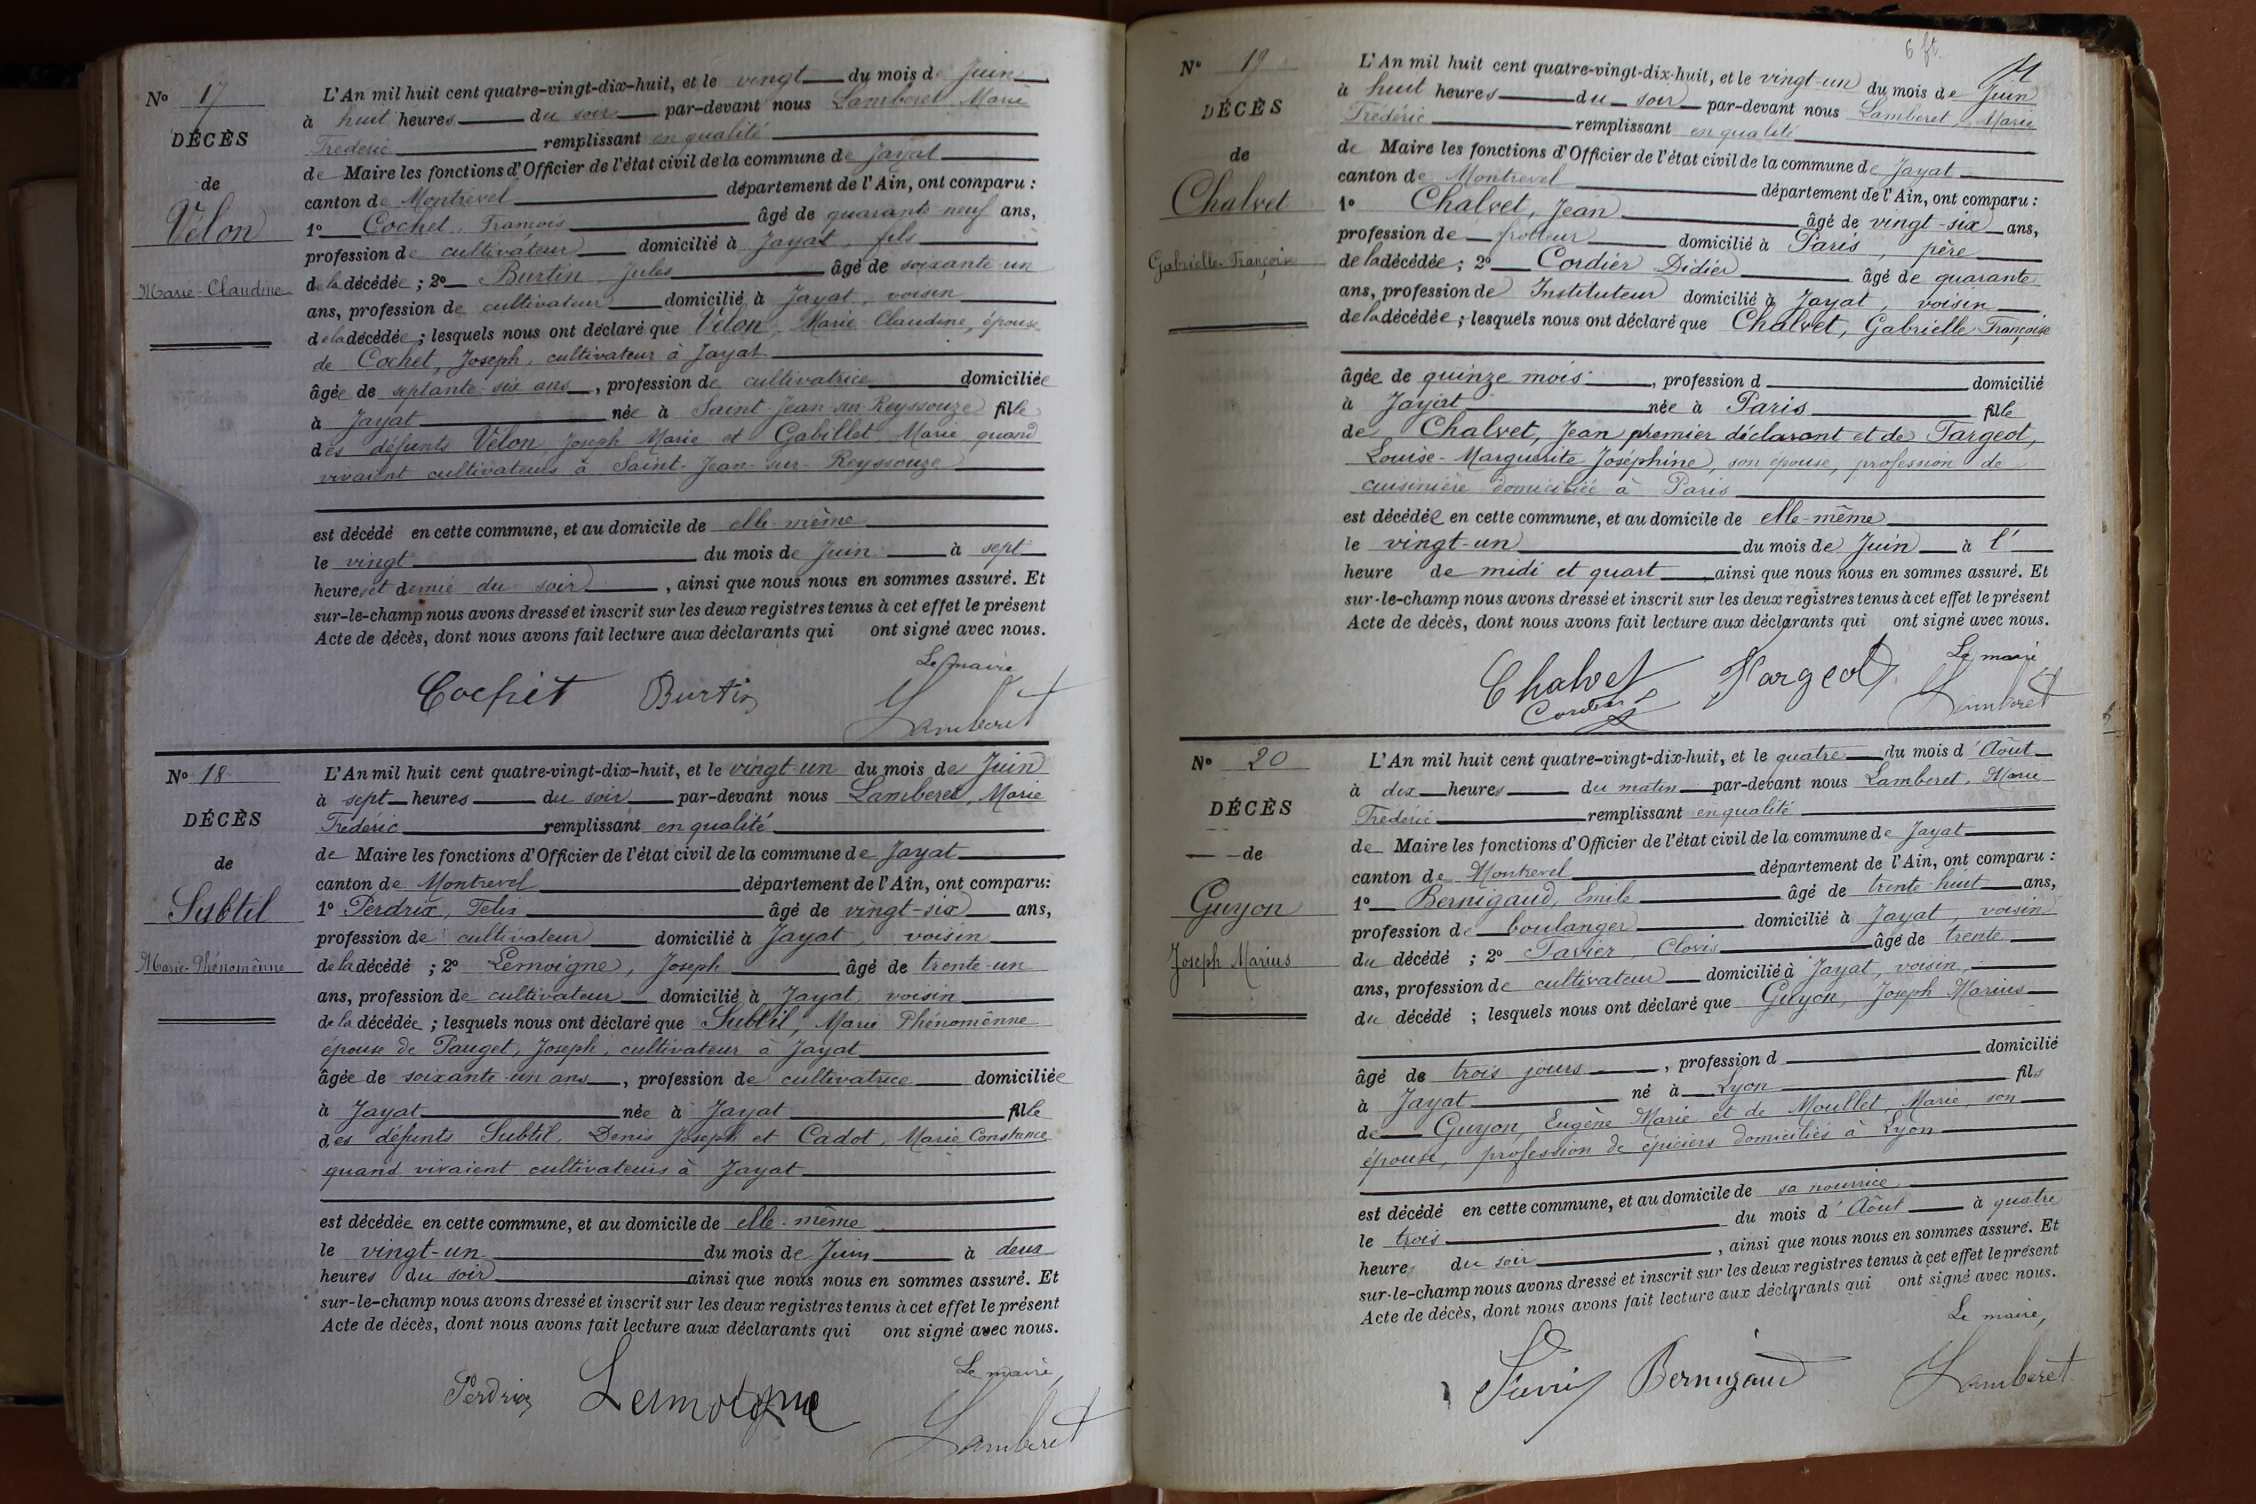 N° 17
DÉCÈS
de
Velon
Marie-Claudine
L'An mil huit cent quatre-vingt-dix-huit, et le vingt du mois de Juin
à huit heures du soir par-devant nous Lamberet Marie
Frédéric remplissant en qualité
de Maire les fonctions d'Officier de l'état civil de la commune de Jayat
canton de Montrevel département de l'Ain, ont comparu :
1° Cochet, François âgé de quarante-neuf ans,
profession de cultivateur domicilié à Jayat, fils
de la décédée ; 2° Burtin Jules âgé de soixante un
ans, profession de cultivateur domicilié à Jayat, voisin
de la décédée ; lesquels nous ont déclaré que Velon, Marie Claudine, épouse
de Cochet, Joseph, cultivateur à Jayat
âgée de septante-six ans, profession de cultivatrice domiciliée
à Jayat née à Saint-Jean-sur-Reyssouze fille
des défunts Velon Joseph Marie et Gabillet Marie, quand
vivaient cultivateurs à Saint-Jean-sur-Reyssouze
est décédé en cette commune, et au domicile de elle-même
le vingt du mois de Juin à sept
heures et demie du soir, ainsi que nous nous en sommes assuré. Et
sur-le-champ nous avons dressé et inscrit sur les deux registres tenus à cet effet le présent
Acte de décès, dont nous avons fait lecture aux déclarants qui ont signé avec nous.
Le maire
Cochet Burtin Lamberet
N° 18
DÉCÈS
de
Subtil
Marie-Phénomênne
L'An mil huit cent quatre-vingt-dix-huit, et le vingt-un du mois de Juin
à sept heures du soir par-devant nous Lamberet, Marie
Frédéric remplissant en qualité
de Maire les fonctions d'Officier de l'état civil de la commune de Jayat
canton de Montrevel département de l'Ain, ont comparu:
1° Perdrix, Felix âgé de vingt-six ans,
profession de cultivateur domicilié à Jayat, voisin
de la décédé ; 2° Lemoigne, Joseph âgé de trente-un
ans, profession de cultivateur domicilié à Jayat, voisin
de la décédée ; lesquels nous ont déclaré que Subtil, Marie Phénomênne
épouse de Pauget, Joseph, cultivateur à Jayat
âgée de soixante-un ans, profession de cultivatrice domiciliée
à Jayat née à Jayat fille
des défunts Subtil, Denis Joseph et Cadot, Marie Constance
quand vivaient cultivateurs à Jayat
est décédée en cette commune, et au domicile de elle-même
le vingt-un du mois de Juin à deux
heures du soir ainsi que nous nous en sommes assuré. Et
sur-le-champ nous avons dressé et inscrit sur les deux registres tenus à cet effet le présent
Acte de décès, dont nous avons fait lecture aux déclarants qui ont signé avec nous.
Le maire,
Perdrix Lemoigne Lamberet
6 ft.
N° 19
DÉCÈS
de
Chalvet
Gabrielle-Françoise
L'An mil huit cent quatre-vingt-dix-huit, et le vingt-un du mois de Juin
à huit heures du soir par-devant nous Lamberet, Marie
Frédéric remplissant en qualité
de Maire les fonctions d'Officier de l'état civil de la commune de Jayat
canton de Montrevel département de l'Ain, ont comparu :
1° Chalvet, Jean âgé de vingt-six ans,
profession de frotteur domicilié à Paris, père
de la décédée ; 2° Cordier Didier âgé de quarante
ans, profession de Instituteur domicilié à Jayat, voisin
de la décédée ; lesquels nous ont déclaré que Chalvet, Gabrielle Françoise
âgée de quinze mois, profession d domicilié
à Jayat née à Paris fille
de Chalvet, Jean premier déclarant et de Targeot,
Louise-Marguerite-Joséphine, son épouse, profession de
cuisinière domiciliée à Paris
est décédée en cette commune, et au domicile de elle-même
le vingt-un du mois de Juin à l'
heure de midi et quart, ainsi que nous nous en sommes assuré. Et
sur-le-champ nous avons dressé et inscrit sur les deux registres tenus à cet effet le présent
Acte de décès, dont nous avons fait lecture aux déclarants qui ont signé avec nous.
Le maire
Chalvet Targeot Lamberet
Cordier
N° 20
DÉCÈS
de
Guyon
Joseph Marius
L'An mil huit cent quatre-vingt-dix-huit, et le quatre du mois d'Aôut
à dix heures du matin par-devant nous Lamberet, Marie
Frédéric remplissant en qualité
de Maire les fonctions d'Officier de l'état civil de la commune de Jayat
canton de Montrevel département de l'Ain, ont comparu :
1° Bernigaud, Emile âgé de trente-huit ans,
profession de boulanger domicilié à Jayat, voisin
du décédé ; 2° Favier, Clovis âgé de trente
ans, profession de cultivateur domicilié à Jayat, voisin,
du décédé ; lesquels nous ont déclaré que Guyon, Joseph Marius
âgé de trois jours, profession d domicilié
à Jayat né à Lyon fils
de Guyon, Eugène Marie et de Moullet, Marie, son
épouse, profession de épiciers domiciliés à Lyon
est décédé en cette commune, et au domicile de sa nourrice
le trois du mois d'Aôut à quatre
heures du soir, ainsi que nous nous en sommes assuré. Et
sur-le-champ nous avons dressé et inscrit sur les deux registres tenus à cet effet le présent
Acte de décès, dont nous avons fait lecture aux déclarants qui ont signé avec nous.
Le maire,
Bernigaud Lamberet